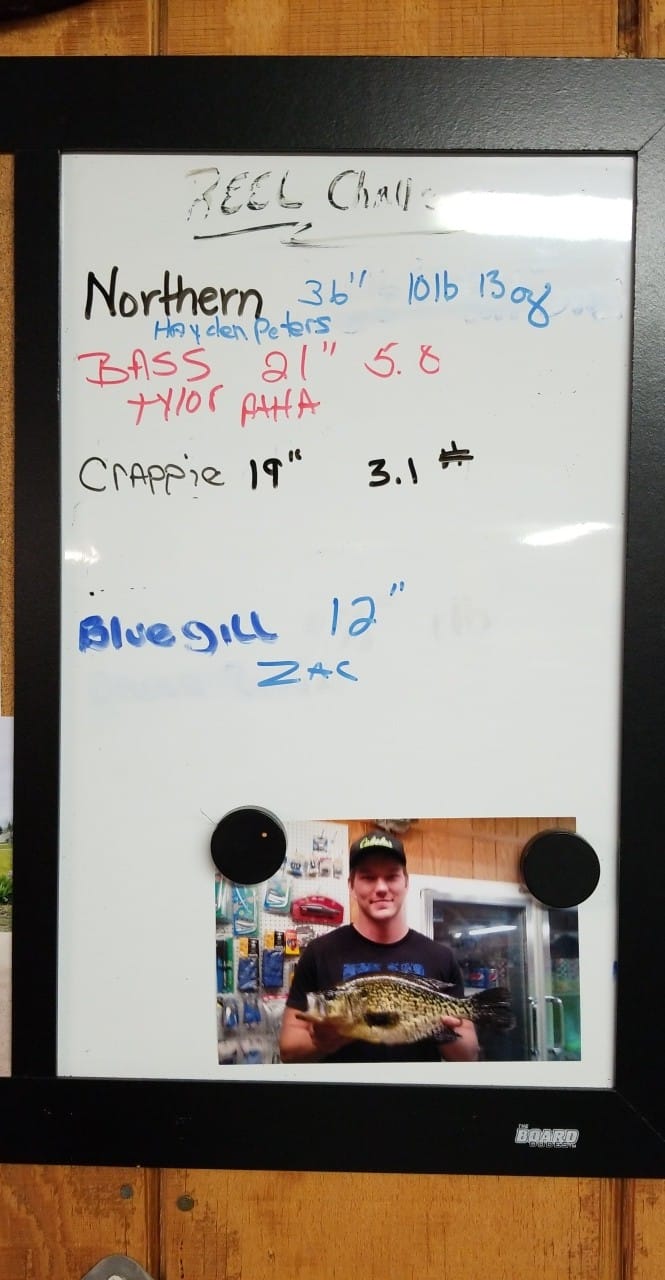 REEL Chall
Northern 36" 10lb 13oz
Hayden Peters
BASS 21" 5.8
tylor
Crappie 19" 3.1 #
Bluegill 12"
ZAC
Cabela's
THE BOARD